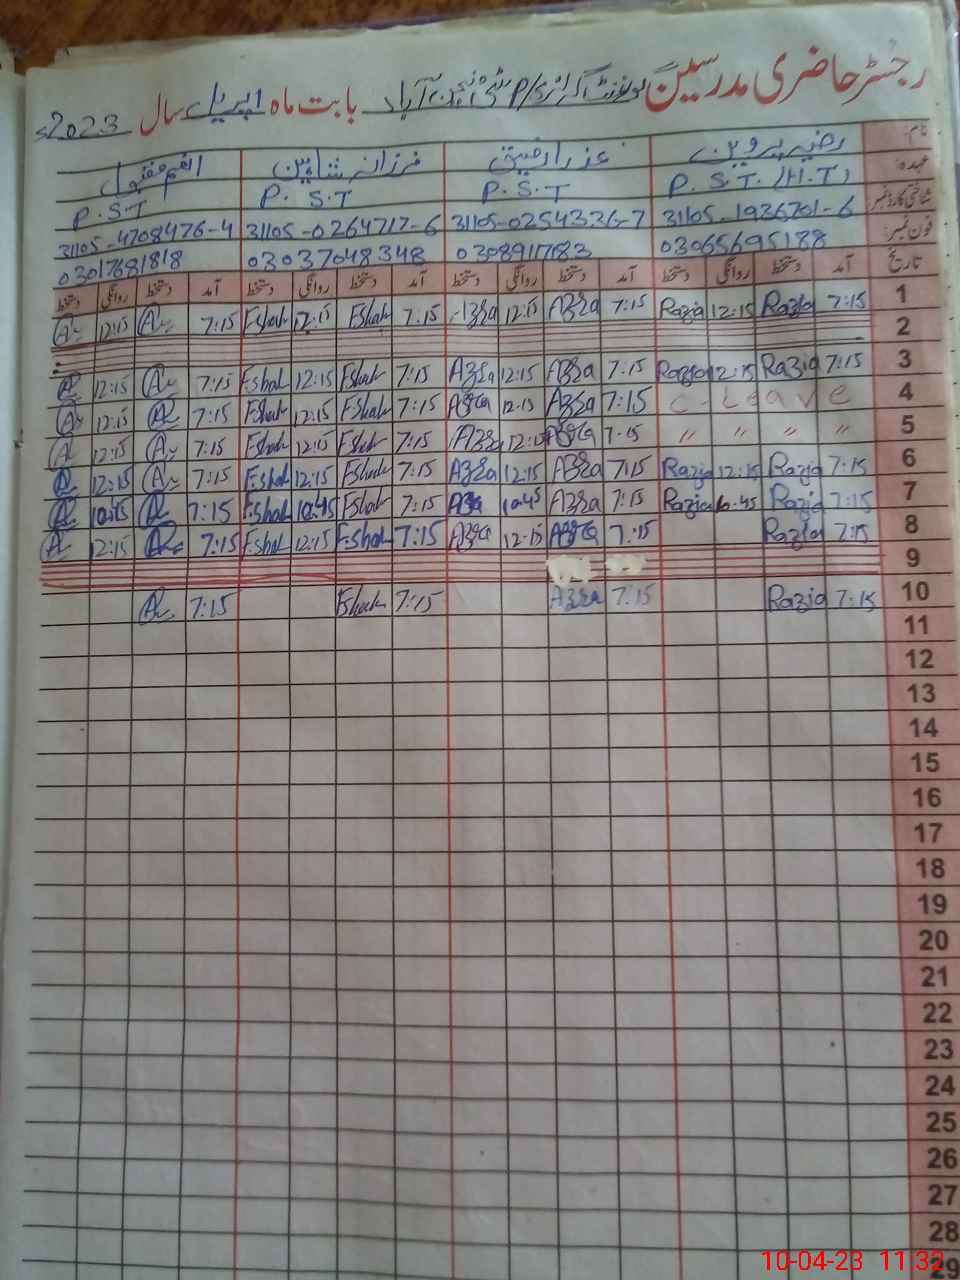 رجسٹر حاضری مدرسین گورنمنٹ گرلز P/S بستی آباد بابت ماہ اپریل سال 2023ء
نام رضیہ پروین عذرا رفیق فرزانہ شاہین انعم مقبول
عہدہ P.S.T. (H.T) P.S.T P.S.T P.S.T
شناختی کارڈ نمبر 31105-1936701-6 31105-0254326-7 31105-0264717-6 31105-4708476-4
فون نمبر 03065695188 0308917183 03037048348 03017681818
تاریخ آمد دستخط روانگی دستخط آمد دستخط روانگی دستخط آمد دستخط روانگی دستخط آمد دستخط روانگی دستخط
1 7:15 Razia 12:15 Razia 7:15 Azra 12:15 Azra 7:15 Eshah 12:15 Eshah 7:15 12:15
2
3 7:15 Razia 12:15 Razia 7:15 Azra 12:15 Azra 7:15 Eshah 12:15 Eshah 7:15 12:15
4 C-Leave 7:15 Azra 12:15 Azra 7:15 Eshah 12:15 Eshah 7:15 12:15
5 〃 〃 〃 〃 7:15 Azra 12:15 Azra 7:15 Eshah 12:15 Eshah 7:15 12:15
6 7:15 Razia 12:15 Razia 7:15 Azra 12:15 Azra 7:15 Eshah 12:15 Eshah 7:15 12:15
7 7:15 Razia 10:45 Razia 7:15 Azra 10:45 Azra 7:15 Eshah 10:45 Eshah 7:15 10:45
8 7:15 Razia 7:15 Azra 12:15 Azra 7:15 Eshah 12:15 Eshah 7:15 12:15
9
10 7:15 Razia 7:15 Azra 7:15 Eshah 7:15
11
12
13
14
15
16
17
18
19
20
21
22
23
24
25
26
27
28
29
10-04-23 11:32